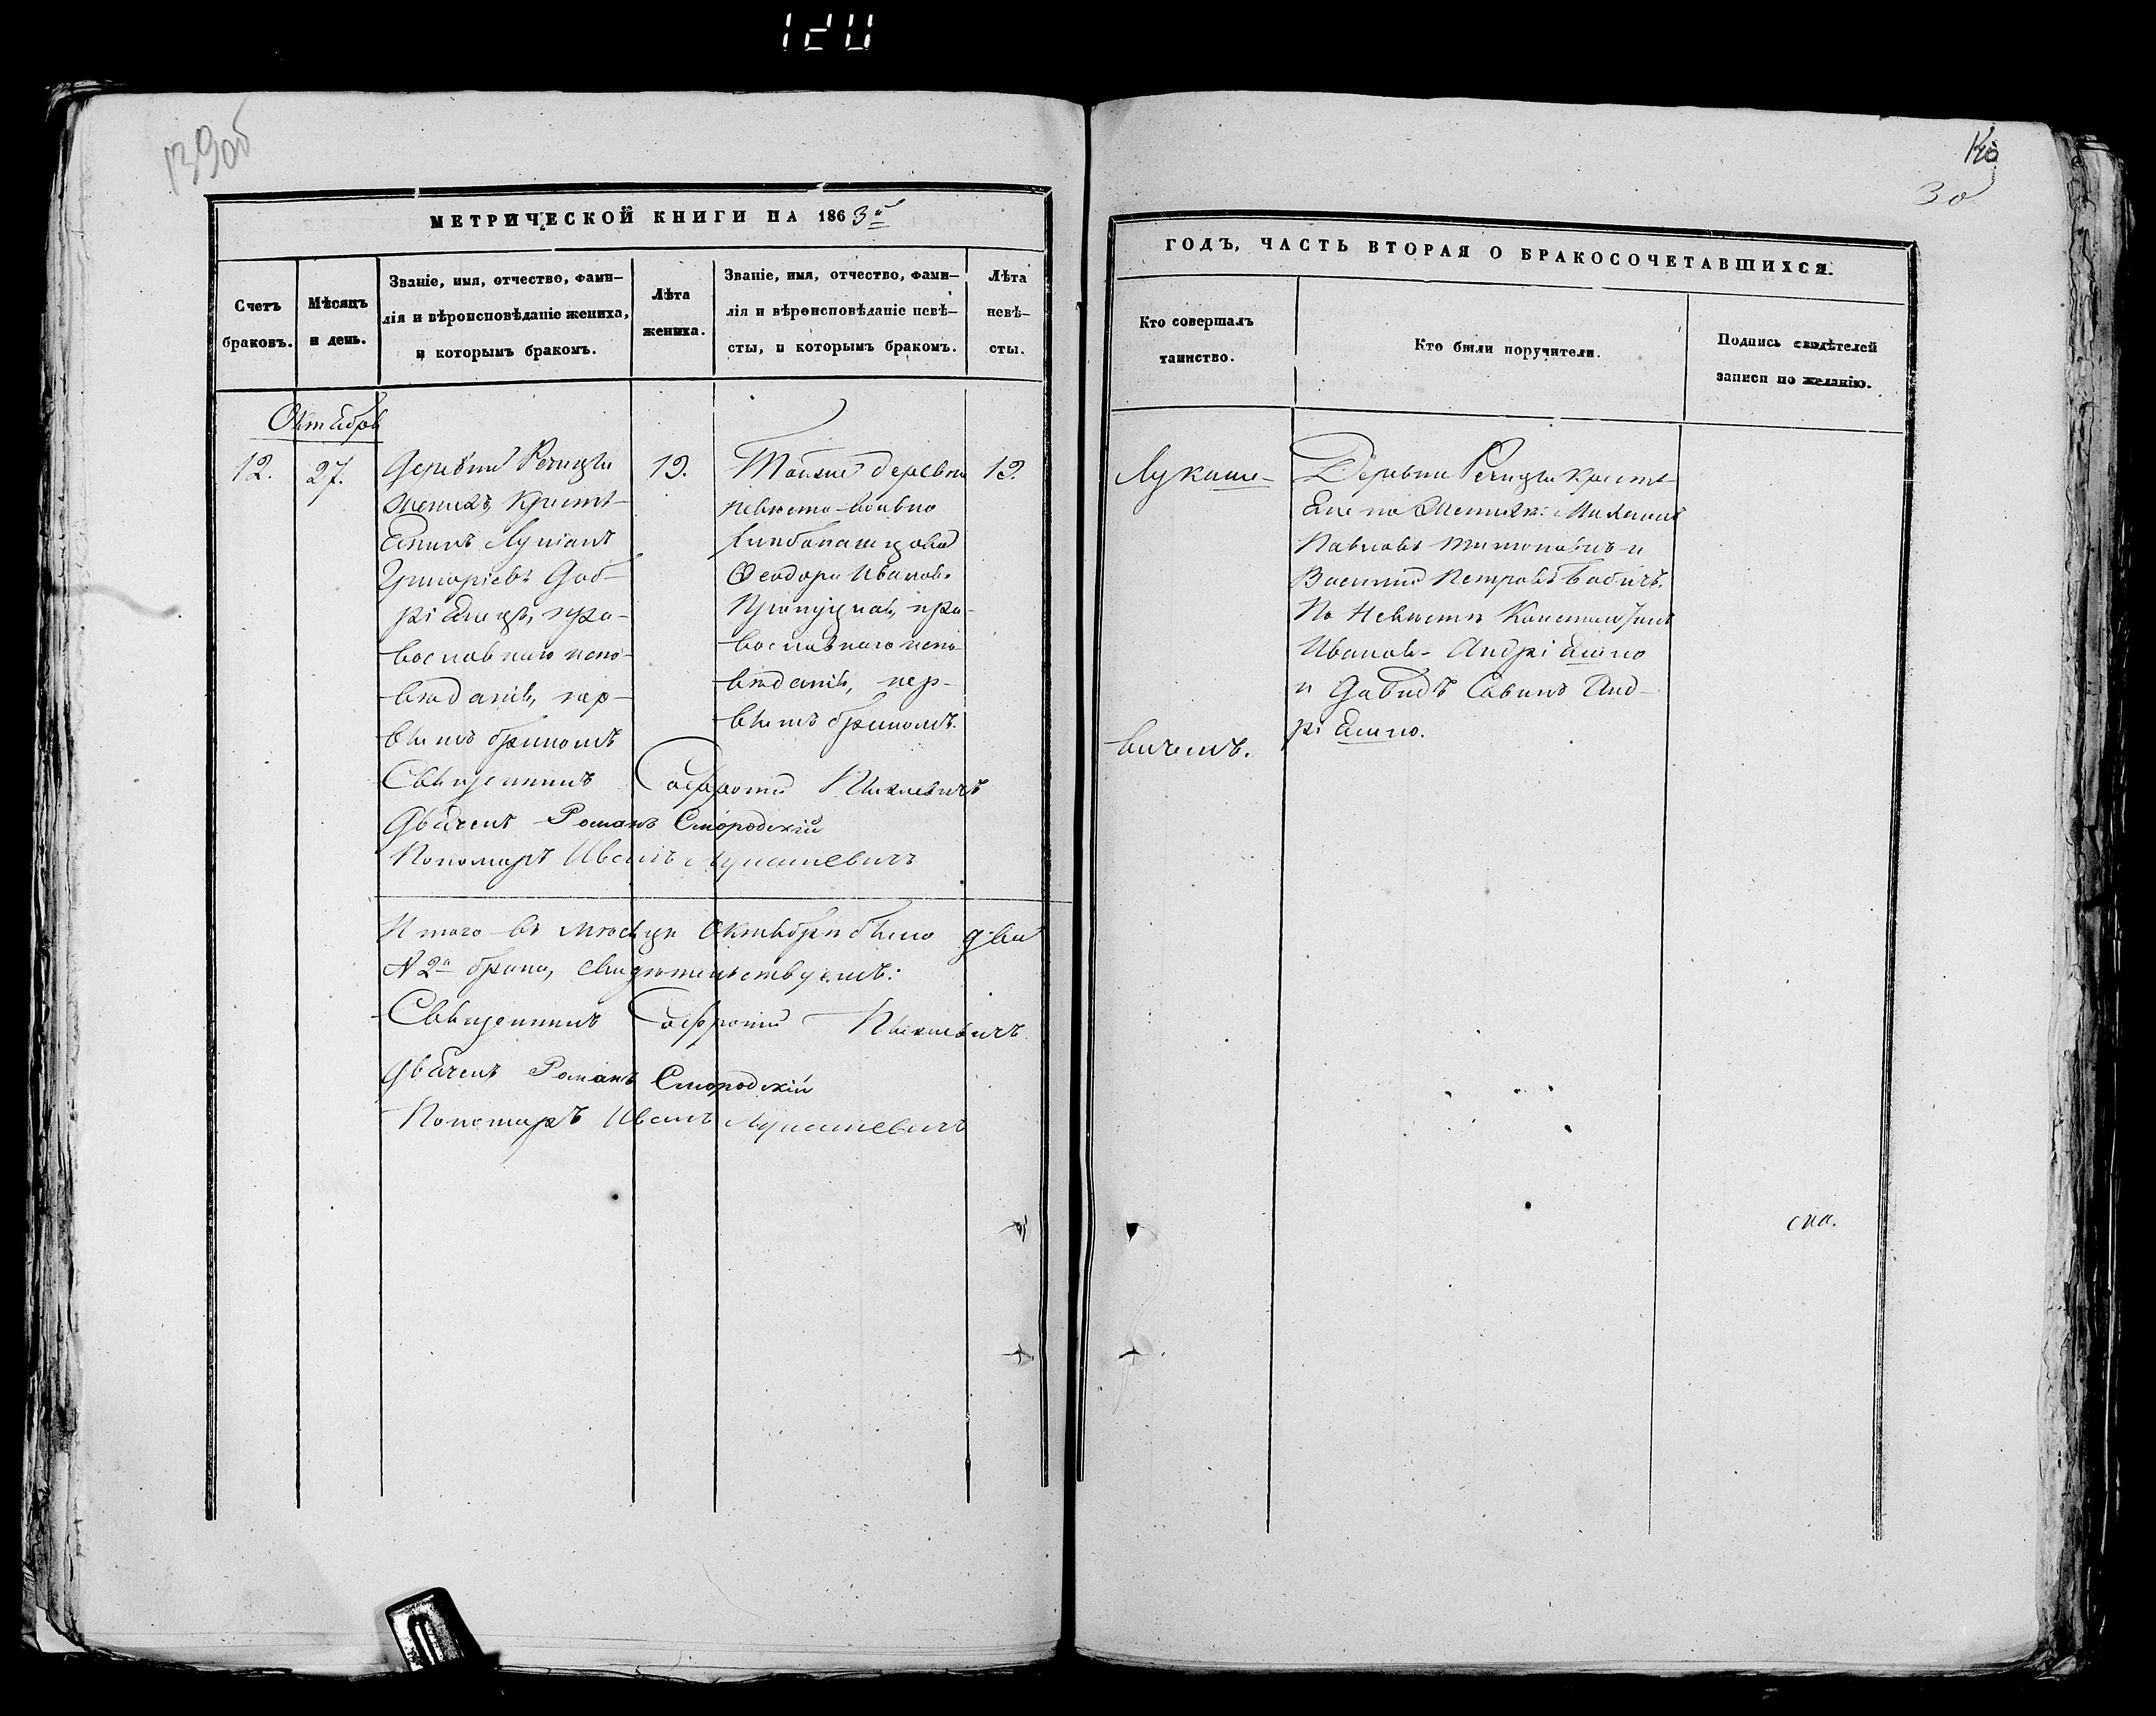 139об
140
30
МЕТРИЧЕСКОЙ КНИГИ НА 1863й
Счетъ браковъ.
Мѣсяцъ и день.
Званіе, имя, отчество, фами-
лія и вѣроисповѣданіе жениха,
и которымъ бракомъ.
Лѣта жениха.
Званіе, имя, отчество, фами-
лія и вѣроисповѣданіе невѣ-
сты, и которымъ бракомъ.
Лѣта невѣ-
сты.
Октябрь
12.
27.
Деревни Речицы
женихъ, кресть-
янинъ Лукіанъ
Григоріевъ
пра-
вославнаго испо-
вѣданія, пер-
вымъ бракомъ
19.
Тойже деревни
невѣста
Ѳеодора Иванов.
пра-
вославнаго испо-
вѣданія, пер-
вымъ бракомъ.
19.
Священникъ Софроній
Дьячекъ Романъ Смородскій
Пономарь Иванъ Лукашевичъ
Итого въ мѣсяцѣ Октябрѣ было два
№ 2а брака, свидѣтельствуемъ:
Священникъ Софроній
Дьячекъ Романъ Смородскій
Пономарь Иванъ Лукашевичъ
ГОДЪ, ЧАСТЬ ВТОРАЯ О БРАКОСОЧЕТАВШИХСЯ.
Кто совершалъ
таинство.
Кто были поручители.
Подпись свидѣтелей
записи по желанію.
Лукаше-
вичемъ.
Деревни Речицы кресть-
яне по женихѣ: Михаилъ
Павловъ и
Василій Петровъ Бабичъ.
По Невѣстѣ
Ивановъ Андріяшко
и Давидъ Савинъ Анд-
ріяшко.